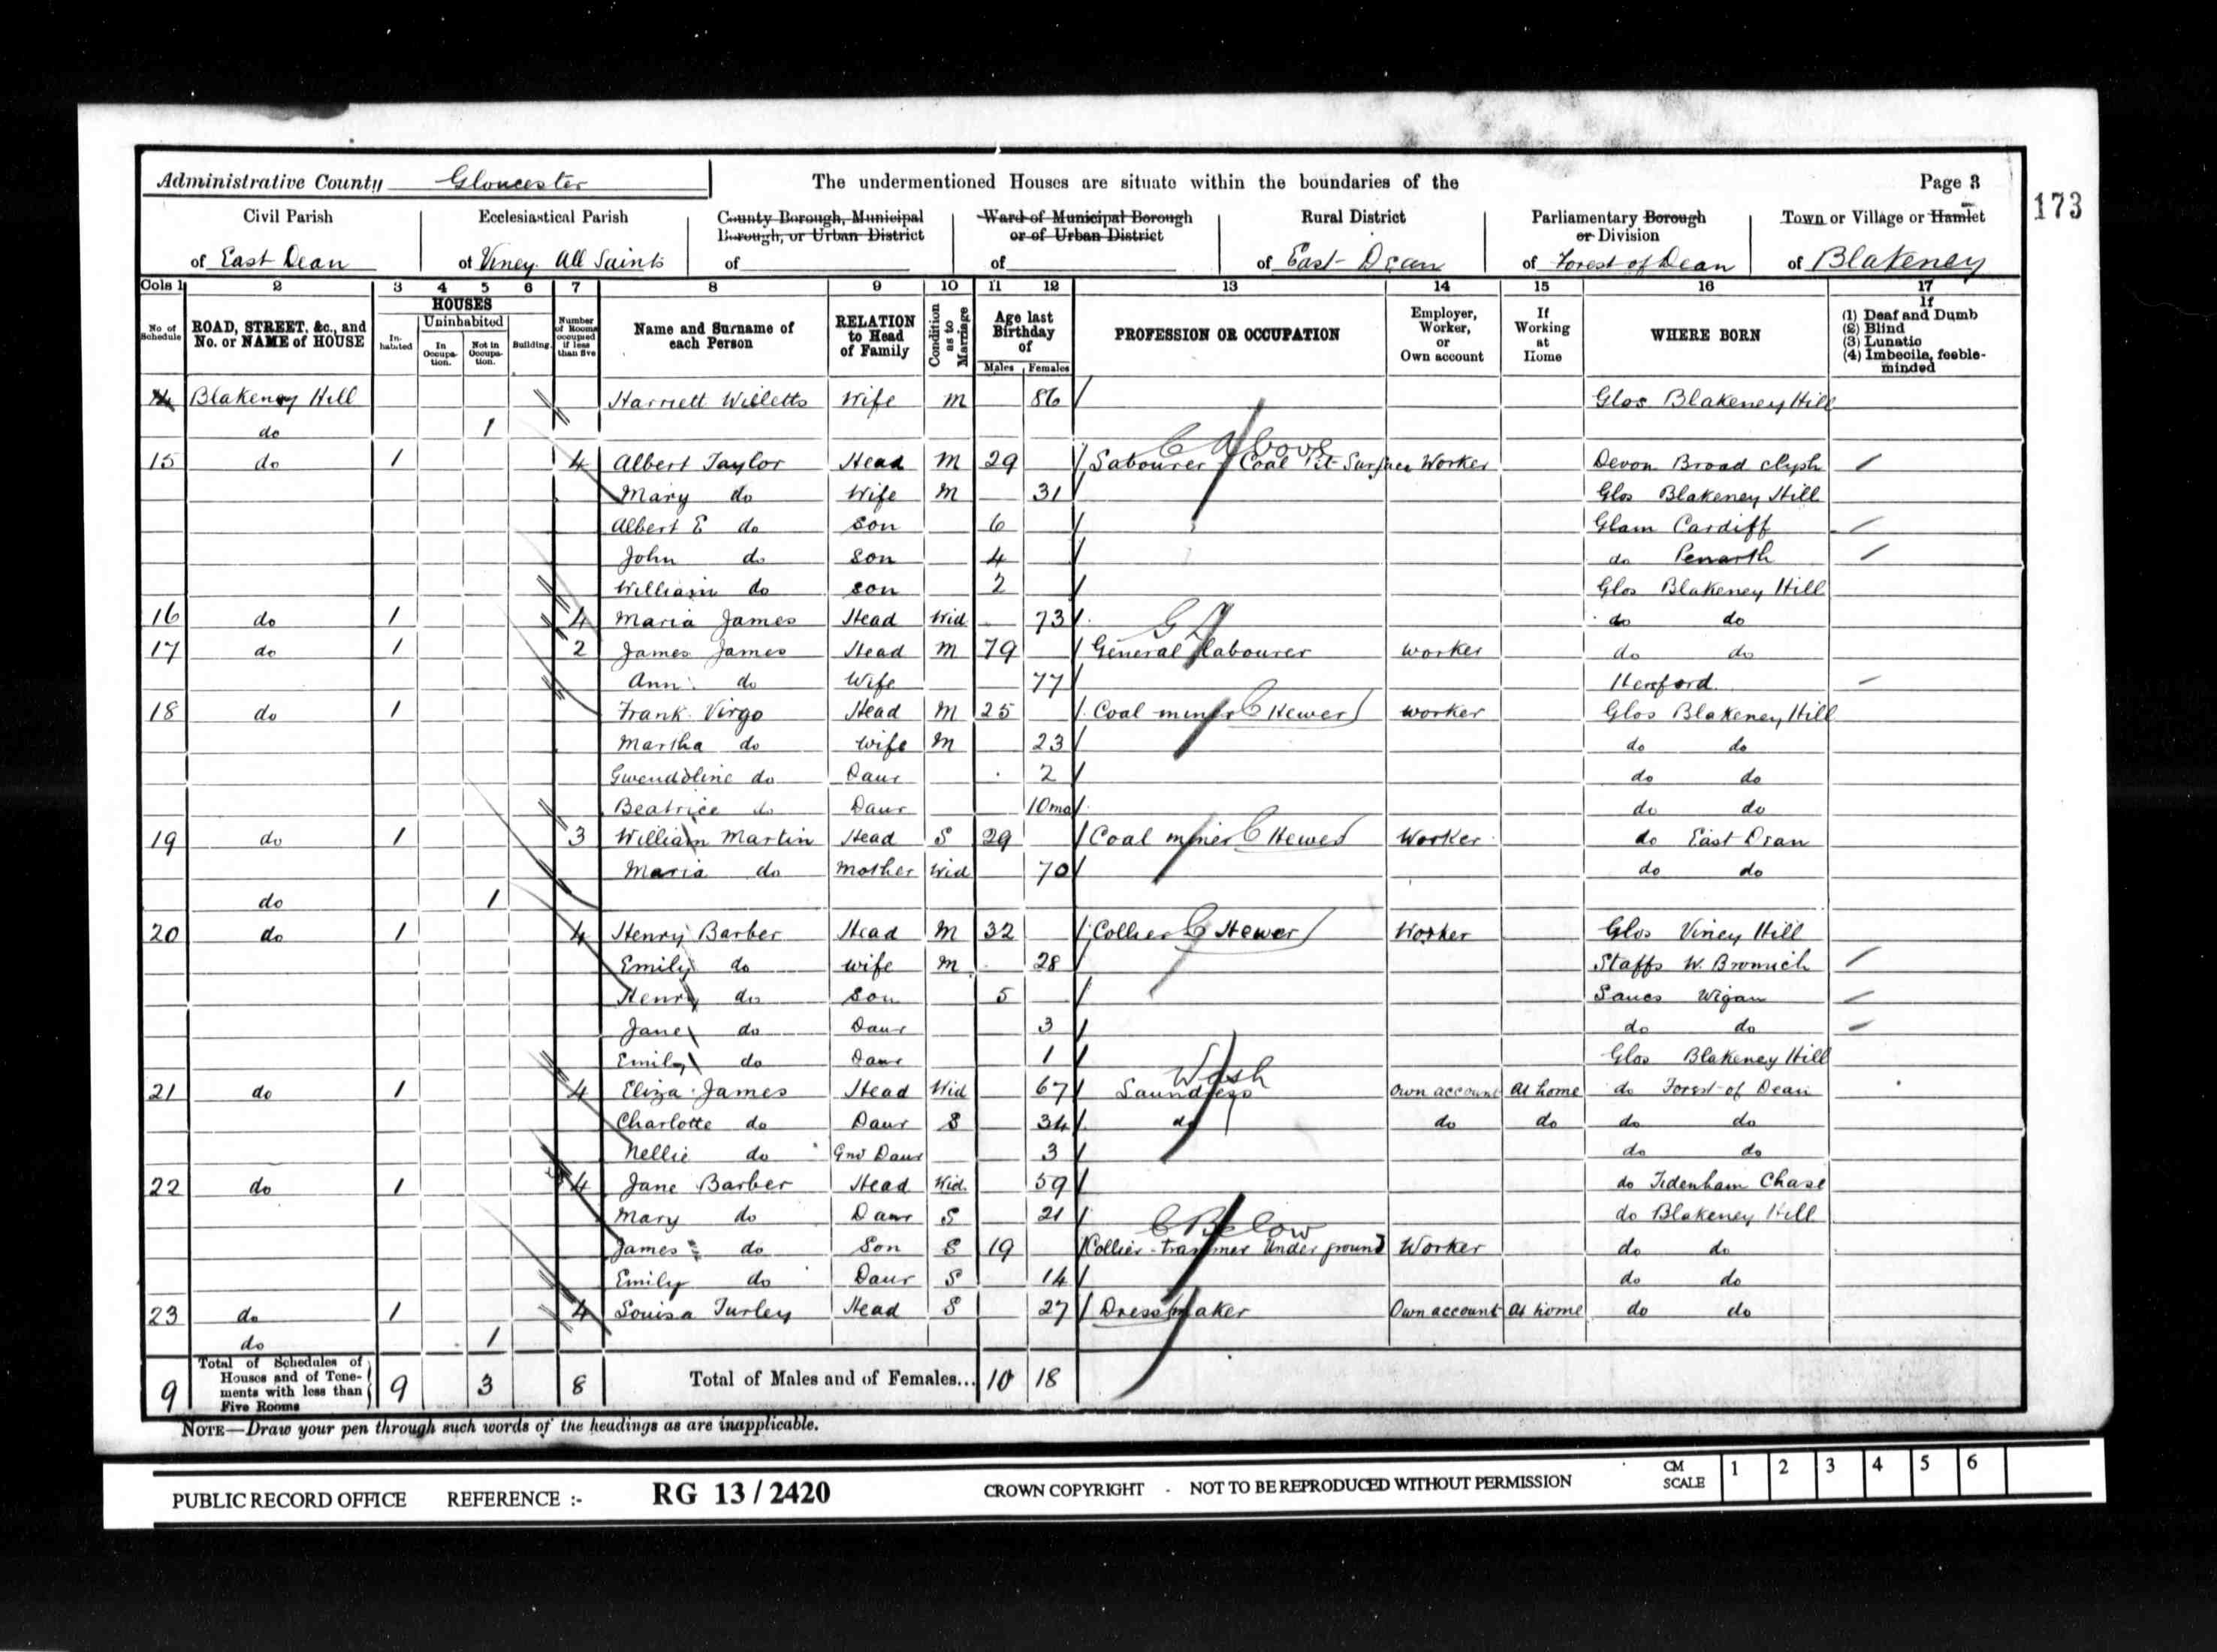 Administrative County Gloucester The undermentioned Houses are situate within the boundaries of the Page 3
173
Civil Parish Ecclesiastical Parish County Borough, Municipal Borough, or Urban District Ward of Municipal Borough or of Urban District Rural District Parliamentary Borough or Division Town or Village or Hamlet
of East Dean of Viney All Saints of of of East Dean of Forest of Dean of Blakeney
Cols 1 2 3 4 5 6 7 8 9 10 11 12 13 14 15 16 17
No of Schedule ROAD, STREET, &c., and No. or NAME of HOUSE HOUSES Inhabited Uninhabited In Occupation. Not in Occupation. Building. Number of Rooms occupied if less than five Name and Surname of each Person RELATION to Head of Family Condition as to Marriage Age last Birthday of Males Females PROFESSION OR OCCUPATION Employer, Worker, or Own account If Working at Home WHERE BORN If (1) Deaf and Dumb (2) Blind (3) Lunatic (4) Imbecile, feeble-minded
Blakeney Hill Harriett Willetts Wife M 86 Glos Blakeney Hill
do 1
C Above
15 do 1 4 Albert Taylor Head M 29 Labourer Coal Pit Surface Worker Devon Broad Clysh
Mary do Wife M 31 Glos Blakeney Hill
Albert E do Son 6 Glam Cardiff
John do Son 4 do Penarth
William do Son 2 Glos Blakeney Hill
16 do 1 4 Maria James Head Wid 73 do do
G L
17 do 1 2 James James Head M 79 General Labourer Worker do do
Ann do Wife 77 Hereford
18 do 1 Frank Virgo Head M 25 Coal miner C Hewer Worker Glos Blakeney Hill
Martha do Wife M 23 do do
Gwendoline do Daur 2 do do
Beatrice do Daur 10mo do do
19 do 1 3 William Martin Head S 29 Coal miner C Hewer Worker do East Dean
Maria do Mother Wid 70 do do
do 1
20 do 1 4 Henry Barber Head M 32 Collier C Hewer Worker Glos Viney Hill
Emily do Wife M 28 Staffs W. Bromwich
Henry do Son 5 Lancs Wigan
Jane do Daur 3 do do
Emily do Daur 1 Glos Blakeney Hill
Wash
21 do 1 4 Eliza James Head Wid 67 Laundress Own account At home do Forest of Dean
Charlotte do Daur S 34 do do do do do
Nellie do Gnd Daur 3 do do
22 do 1 4 Jane Barber Head Wid. 59 do Tidenham Chase
Mary do Daur S 21 do Blakeney Hill
C Below
James do Son S 19 Collier-trammer Underground Worker do do
Emily do Daur S 14 do do
23 do 1 4 Louisa Turley Head S 27 Dressmaker Own account At home do do
do 1
9 Total of Schedules of Houses and of Tenements with less than Five Rooms 9 3 8 Total of Males and of Females... 10 18
NOTE—Draw your pen through such words of the headings as are inapplicable.
PUBLIC RECORD OFFICE REFERENCE :- RG 13 / 2420 CROWN COPYRIGHT - NOT TO BE REPRODUCED WITHOUT PERMISSION CM SCALE 1 2 3 4 5 6